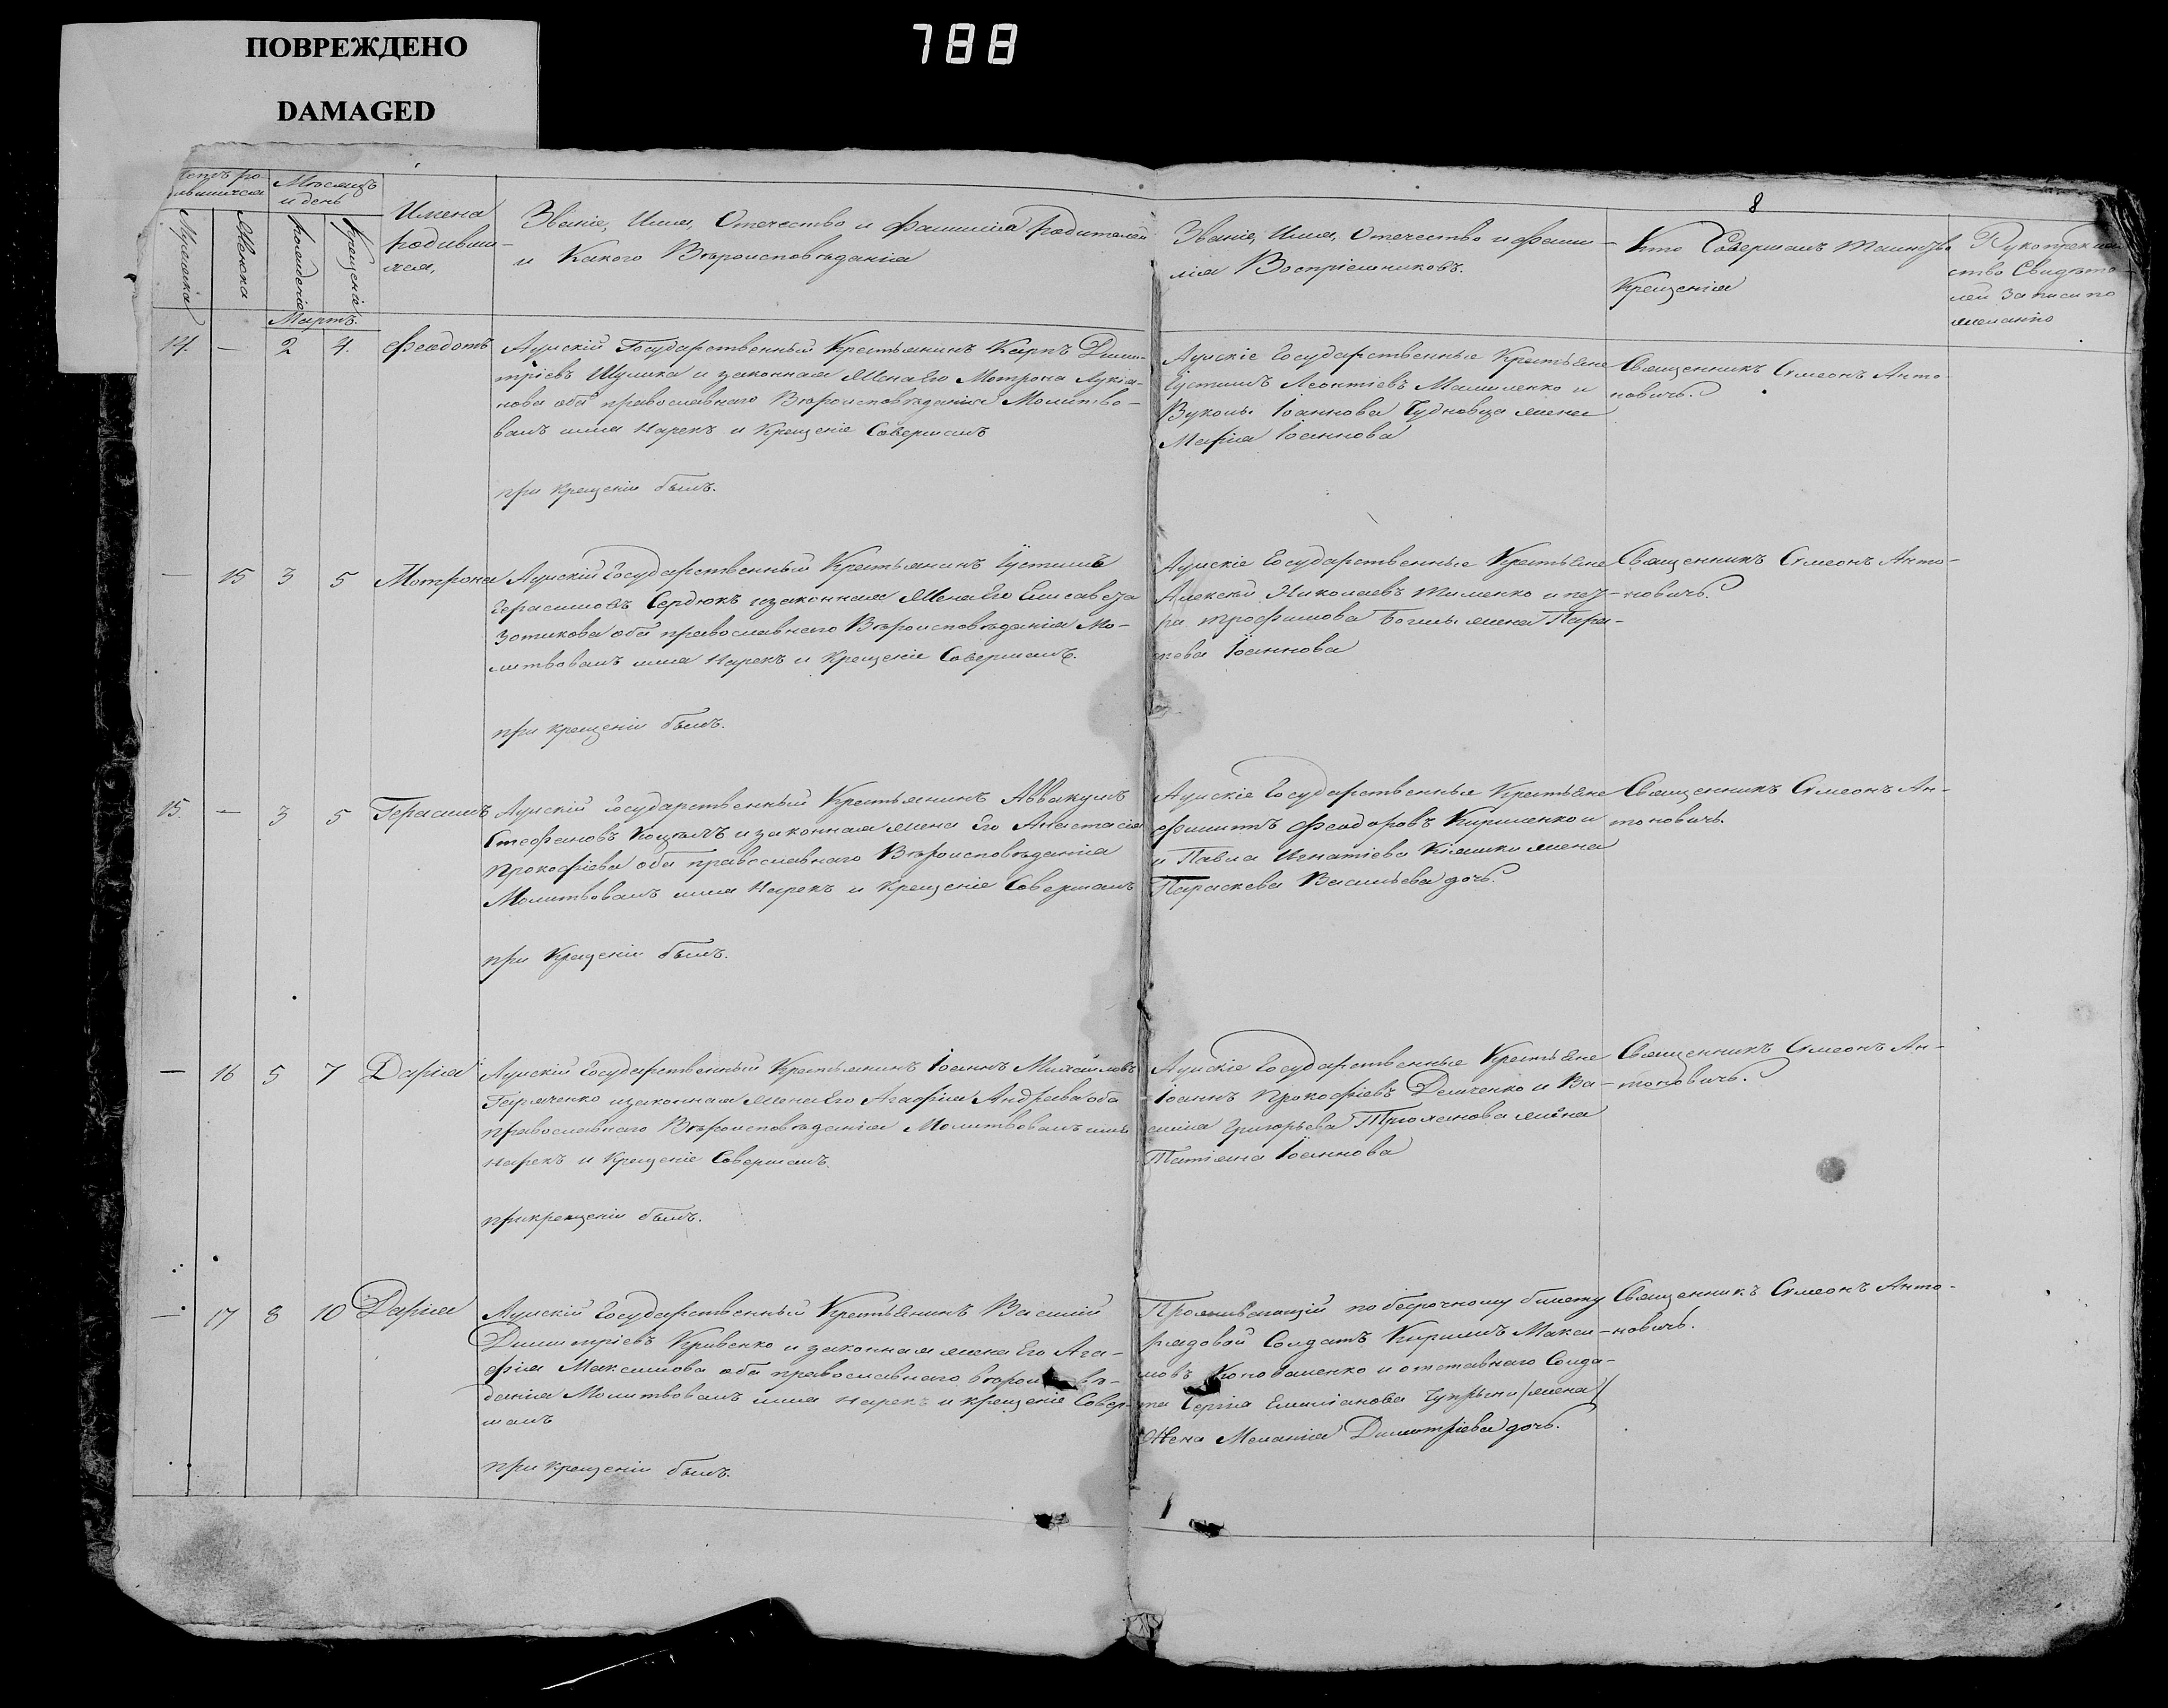 ПОВРЕЖДЕНО
DAMAGED
788
8
Мѣсяцъ
и день
Имена
родивши-
хся,
Званіе, Имя, Отечество и Фамилія родителей
и Какого Вѣроисповѣданія
Званіе, Имя, Отечество и фами-
лія Воспріемниковъ.
Кто Совершалъ Таинство
Крещенія
Рукоприклад
ство Свидѣте-
лей записи по
желанію
Мужеска
Женска
рожденія
Крещенія
Мартъ.
14. — 2 4. Феодотъ
Аулскій Государственный Крестьянинъ Карпъ Дими-
тріевъ Шулика и законная Жена Его Мотрона Лукіа-
нова оба православнаго Вѣроисповѣданія Молитво-
валъ имя Нарекъ и Крещеніе Совершалъ
при крещеніи былъ.
Аулскіе Государственные Крестьяне
Іустинъ Леонтіевъ Мамленко и
Вуколы Іоаннова Чудновца жена
Марія Іоаннова
Священникъ Симеонъ Анто-
новичъ.
— 15 3 5 Мотрона
Аулскій Государственный Крестьянинъ Іустинъ
Герасимовъ Сердюкъ и законная Жена Его Елисавета
Зотикова оба православнаго Вѣроисповѣданія Мо-
литвовалъ имя Нарекъ и Крещеніе Совершалъ.
при крещеніи былъ.
Аулскіе Государственные Крестьяне
Алексѣй Николаевъ Тименко и
Трофимова жена Пара-
кева Іоаннова
Священникъ Симеонъ Анто-
новичъ.
15. — 3 5 Герасимъ
Аулскій Государственный Крестьянинъ Аввакумъ
Стефановъ и законная жена Его Анастасія
Прокофіева оба православнаго Вѣроисповѣданія
Молитвовалъ имя Нарекъ и Крещеніе Совершалъ
при Крещеніи былъ.
Аулскіе Государственные Крестьяне
Филиппъ Феодоровъ Кириленко и
и Павла Игнатіева Кіяшки жена
Параскева Васильева дочь.
Священникъ Симеонъ Ан-
тоновичъ.
— 16 5 7 Дарія
Аулскій Государственный Крестьянинъ Іоаннъ Михайловъ
Горяченко и законная жена Его Агафія Андреева оба
православнаго Вѣроисповѣданія Молитвовалъ имя
Нарекъ и Крещеніе Совершалъ.
при крещеніи былъ.
Аулскіе Государственные Крестьяне
Іоаннъ Прокофіевъ Демченко и Ва-
силія Григорьева Трюханова жена
Татіяна Іоаннова
Священникъ Симеонъ Ан-
тоновичъ.
— 17 8 10 Дарія
Аулскій Государственный Крестьянинъ Василій
Димитріевъ Кривенко и законная жена Его Ага-
фія Максимова оба православнаго вѣроисповѣ-
данія Молитвовалъ имя нарекъ и крещеніе Совер-
шалъ
при крещеніи былъ.
Проживающій по безсрочному билету
рядовой Солдатъ Кирилъ Макси-
мовъ Коноваленко и отставнаго Солда-
та Сергія Емиліанова Чупрыни /жена/
Жена Меланія Димитріева дочь.
Священникъ Симеонъ Анто-
новичъ.